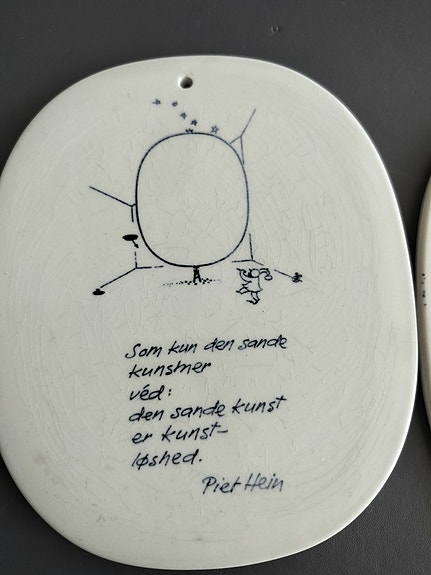 Som kun den sande
kunstner
véd:
den sande kunst
er kunst-
løshed.
Piet Hein